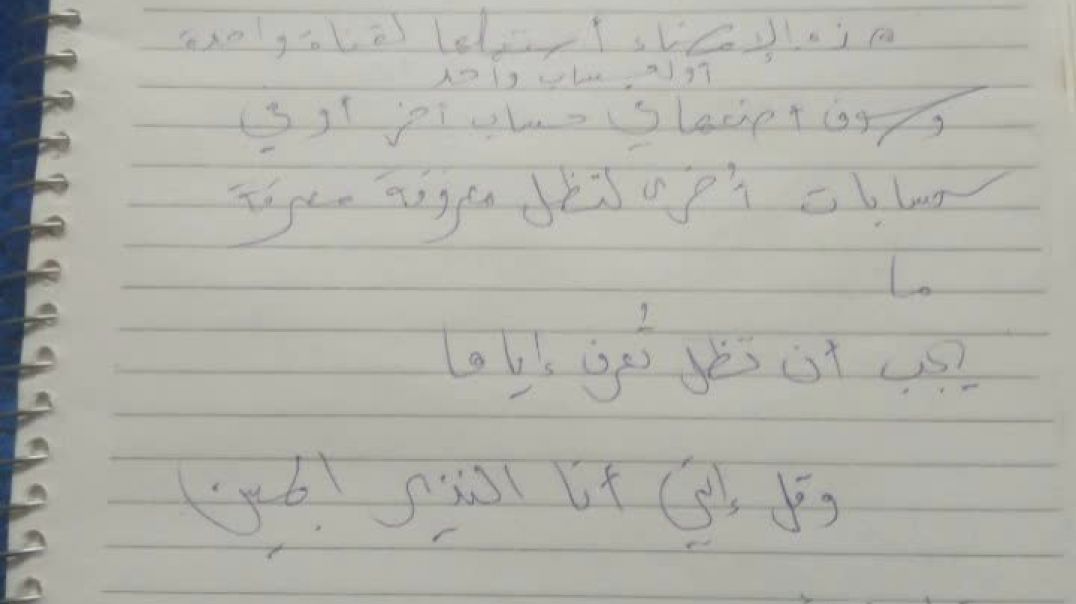 هذه الإمضاء أستعملها لقناة واحدة
أو لحساب واحد
وسوف أضعها في حساب آخر أو في
حسابات أُخرى لتظل معروفة معرفة
ما
يجب أن تظل تُعرف إياها
وقل إني أنا النذير المبين